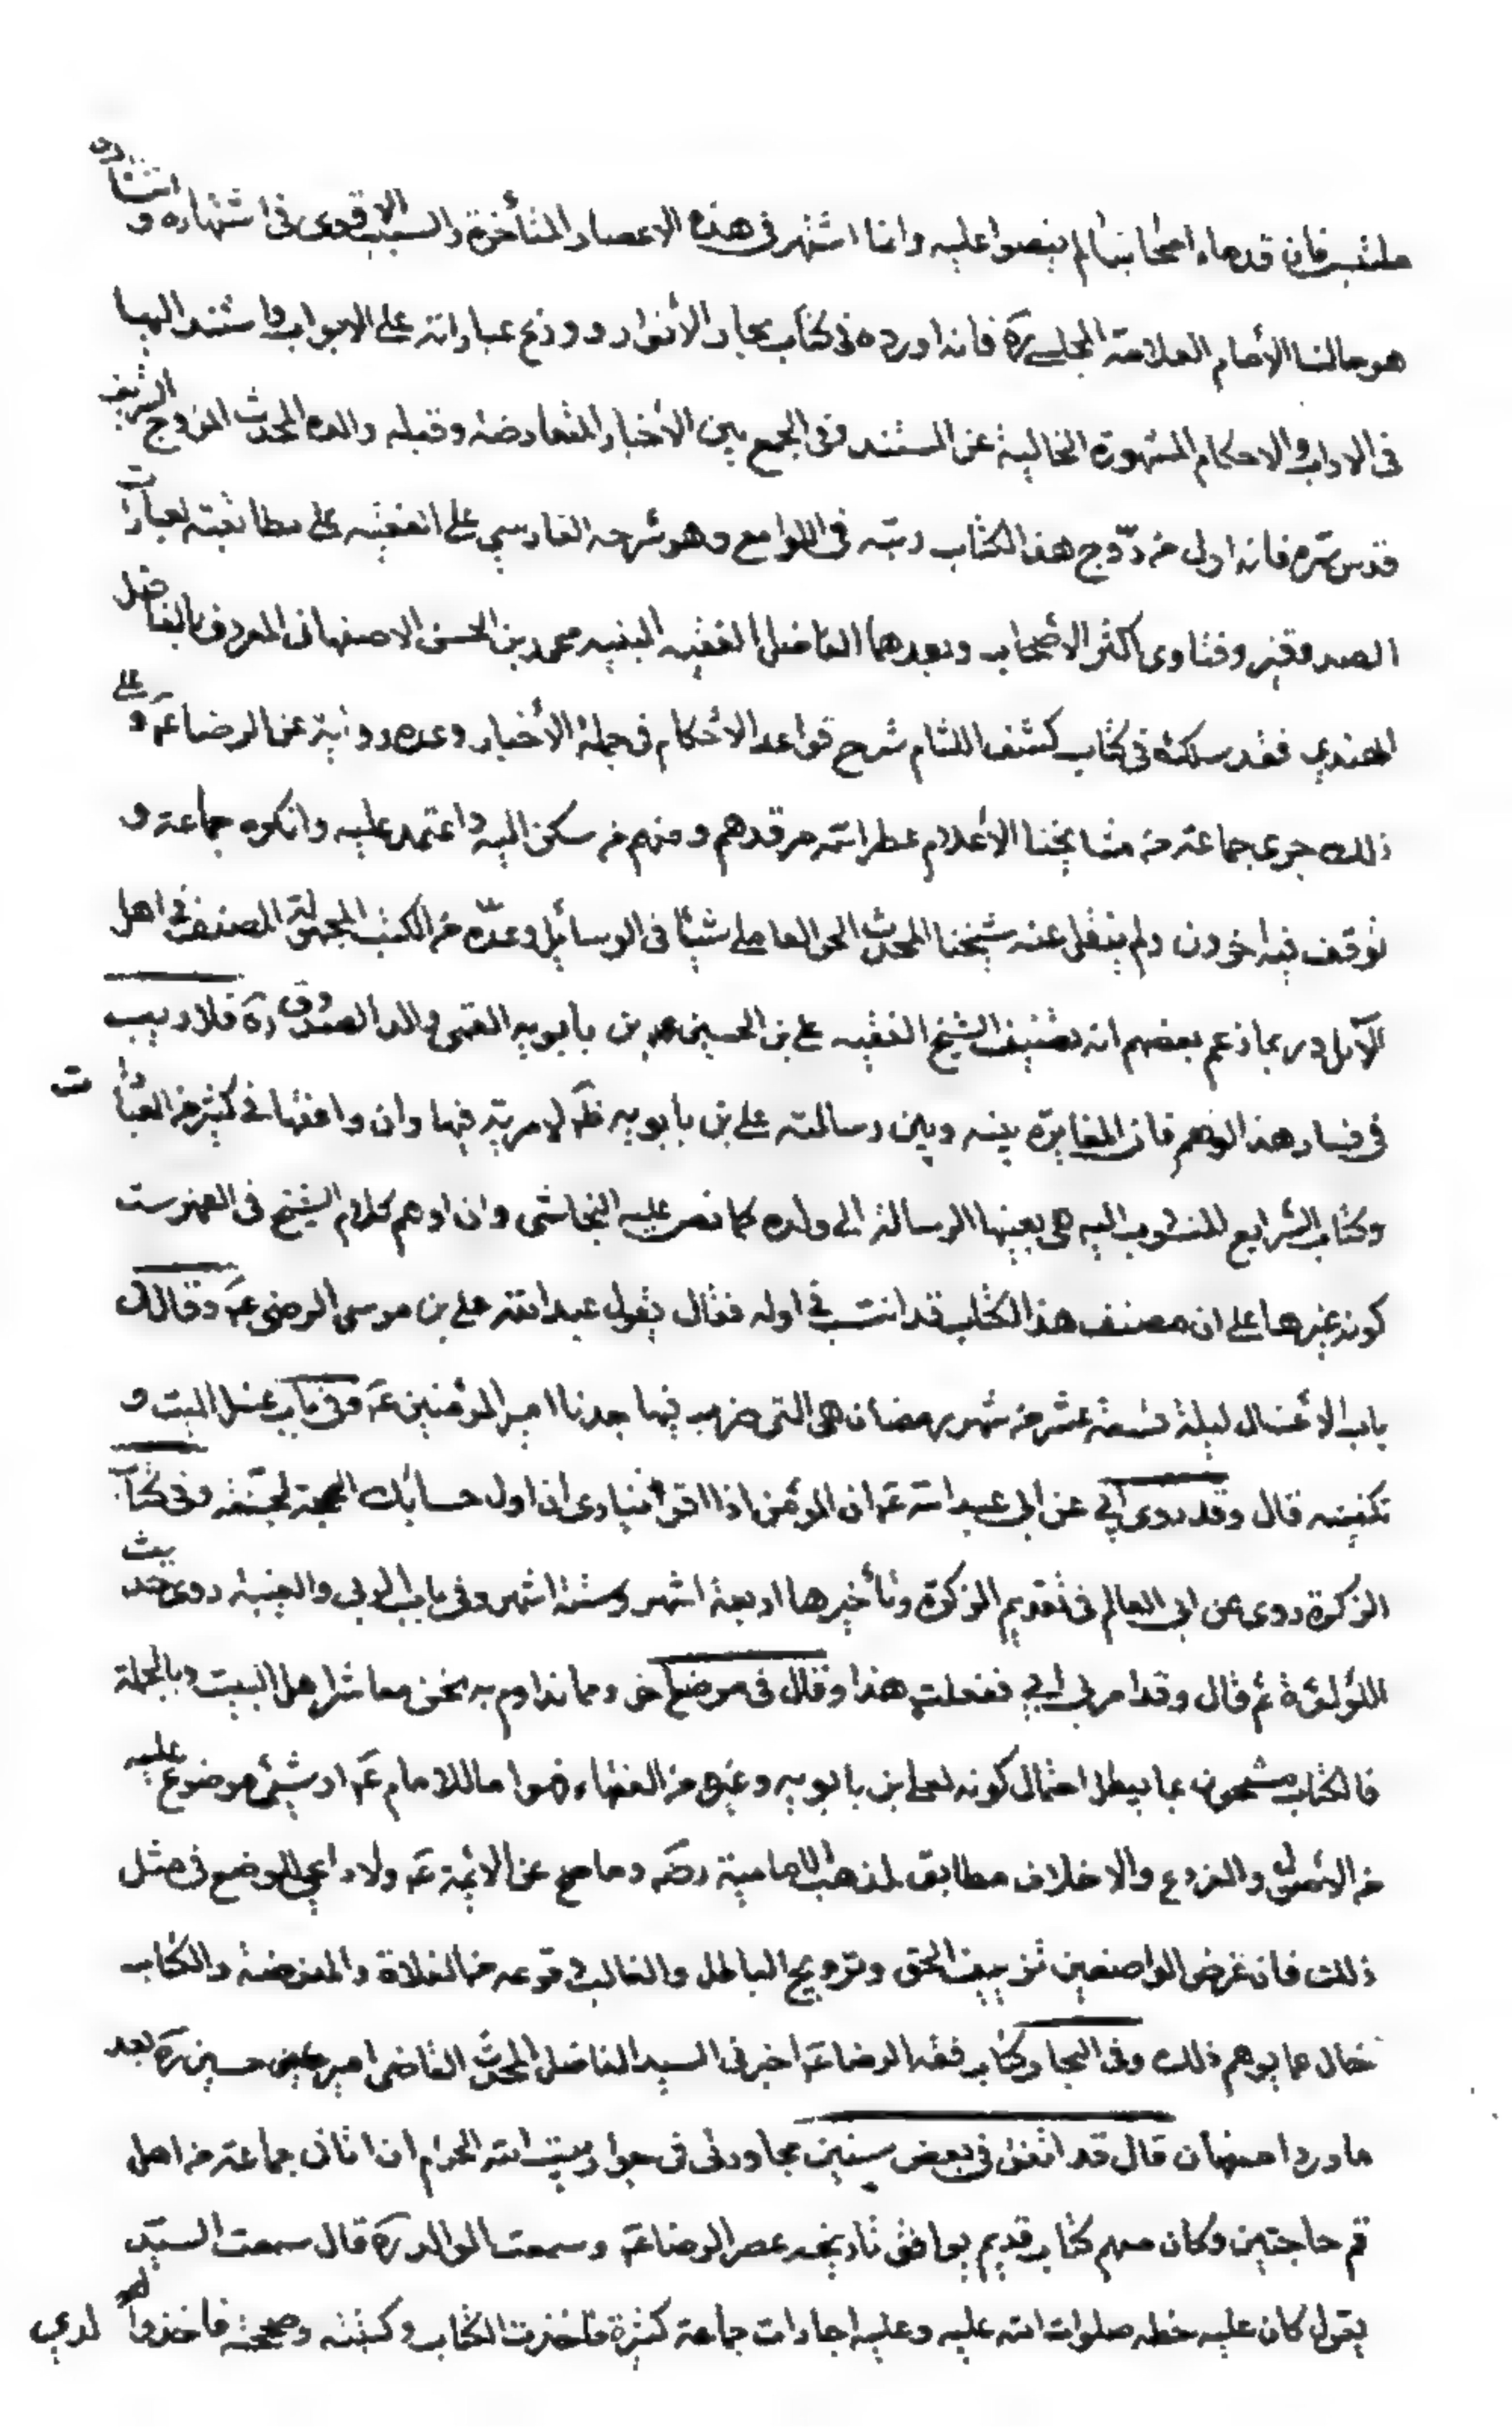 ملتبس فان قدماء اصحابنا لم ينصوا عليه وانما اشتهر فى هذه الاعصار المتأخرة والسبب الاقوى فى اشتهاره و انتشاره
هو خالنا الأمام العلامة المجلسي ره فانه اورده فى كتاب بحار الأنوار ووزع عباراته على الابواب واستند اليها
فى الاداب والاحكام المشهورة الخالية عن المستند وفى الجمع بين الأخبار المتعارضة وقبله والده المحدث المروج الشريف
قدس سره فانه اول من روج هذا الكتاب رتبه فى اللوامع وهو شرحه الفارسي على الفقيه على مطابقته لعبارات
الصدوقين وفتاوى اكثر الأصحاب وبعدهما الفاضل الفقيه النبيه محمد بن الحسن الاصفهانى المعروف بالفاضل
الهندي فقد سلكه فى كتاب كشف اللثام شرح قواعد الأحكام فى جملة الأخبار وعده رواية عن الرضا ع و على
ذلك جرى جماعة من مشايخنا الأعلام عطر الله مرقدهم ومنهم من سكن اليه واعتمد عليه وانكره جماعة و
توقف فيه اخرون ولم ينقل عنه شيخنا المحدث الحر العاملي شيئا فى الوسائل وعده من الكتب المجهولة المصنف فى اهل
الآمل وربما زعم بعضهم انه تصنيف الشيخ الفقيه على بن الحسين بن بابويه القمى والد الصدوق ره فلا ريب
فى فساد هذا الوهم فان المغايرة بينه وبين رسالة على بن بابويه ظ لا مرية فيها وان وافقها فى كثير من العبارات
وكتاب الشرايع المنسوب اليه هى بعينها الرسالة الى ولده كما نص عليه النجاشى وان اوهم كلام الشيخ فى الفهرست
كونه غيرها على ان مصنف هذا الكتاب قد انتسب فى اوله فقال يقول عبد الله على بن موسى الرضى ع وقال فى
باب الأغسال ليلة تسعة عشر من شهر رمضان هى التى ضرب فيها جدنا امير المؤمنين ع وفى باب غسل الميت و
تكفينه قال وقد روى ابي عن ابى عبد الله ع ان المؤمن اذا ينادى ان اول حبائك الجنة وفى كتاب
الزكوة روى عن ابى العالم فى تقديم الزكوة وتأخيرها اربعة اشهر وستة اشهر وفى باب الربى والعينة روى حديث
اللؤلؤة ثم قال وقد امرنى ابي ففعلت هذا وقال فى موضع اخر ومما نداوم به نحن معاشر اهل البيت وبالجملة
فالكتاب مشحون بما يبطل احتمال كونه لعلى بن بابويه وغيره من الفقهاء فهو اما للامام ع او شئ موضوع عليه
من الأصول والفروع والاخلاق مطابق لمذهب الامامية رض وما صح عن الائمة ع ولا داعي للوضع فى مثل
ذلك فان غرض الواضعين تزييف الحق وترويج الباطل والغالب وقوعه من الغلاة والمفوضة والكتاب
خال عما يوهم ذلك وفى البحار وكتاب فقه الرضا ع اخبرنى السيد الفاضل المحدث القاضى امير حسين ره بعد
ما ورد اصفهان قال قد اتفق فى بعض سنين مجاورتى فى جوار بيت الله الحرام ان اتانى جماعة من اهل
قم حاجين وكان معهم كتاب قديم يوافق تاريخه عصر الرضا ع وسمعت الوالد ره قال سمعت السيد
يقول كان عليه خطه صلوات الله عليه وعليه اجازات جماعة كثيرة فاخذت الكتاب وكتبته وصححته فاخذ والدي